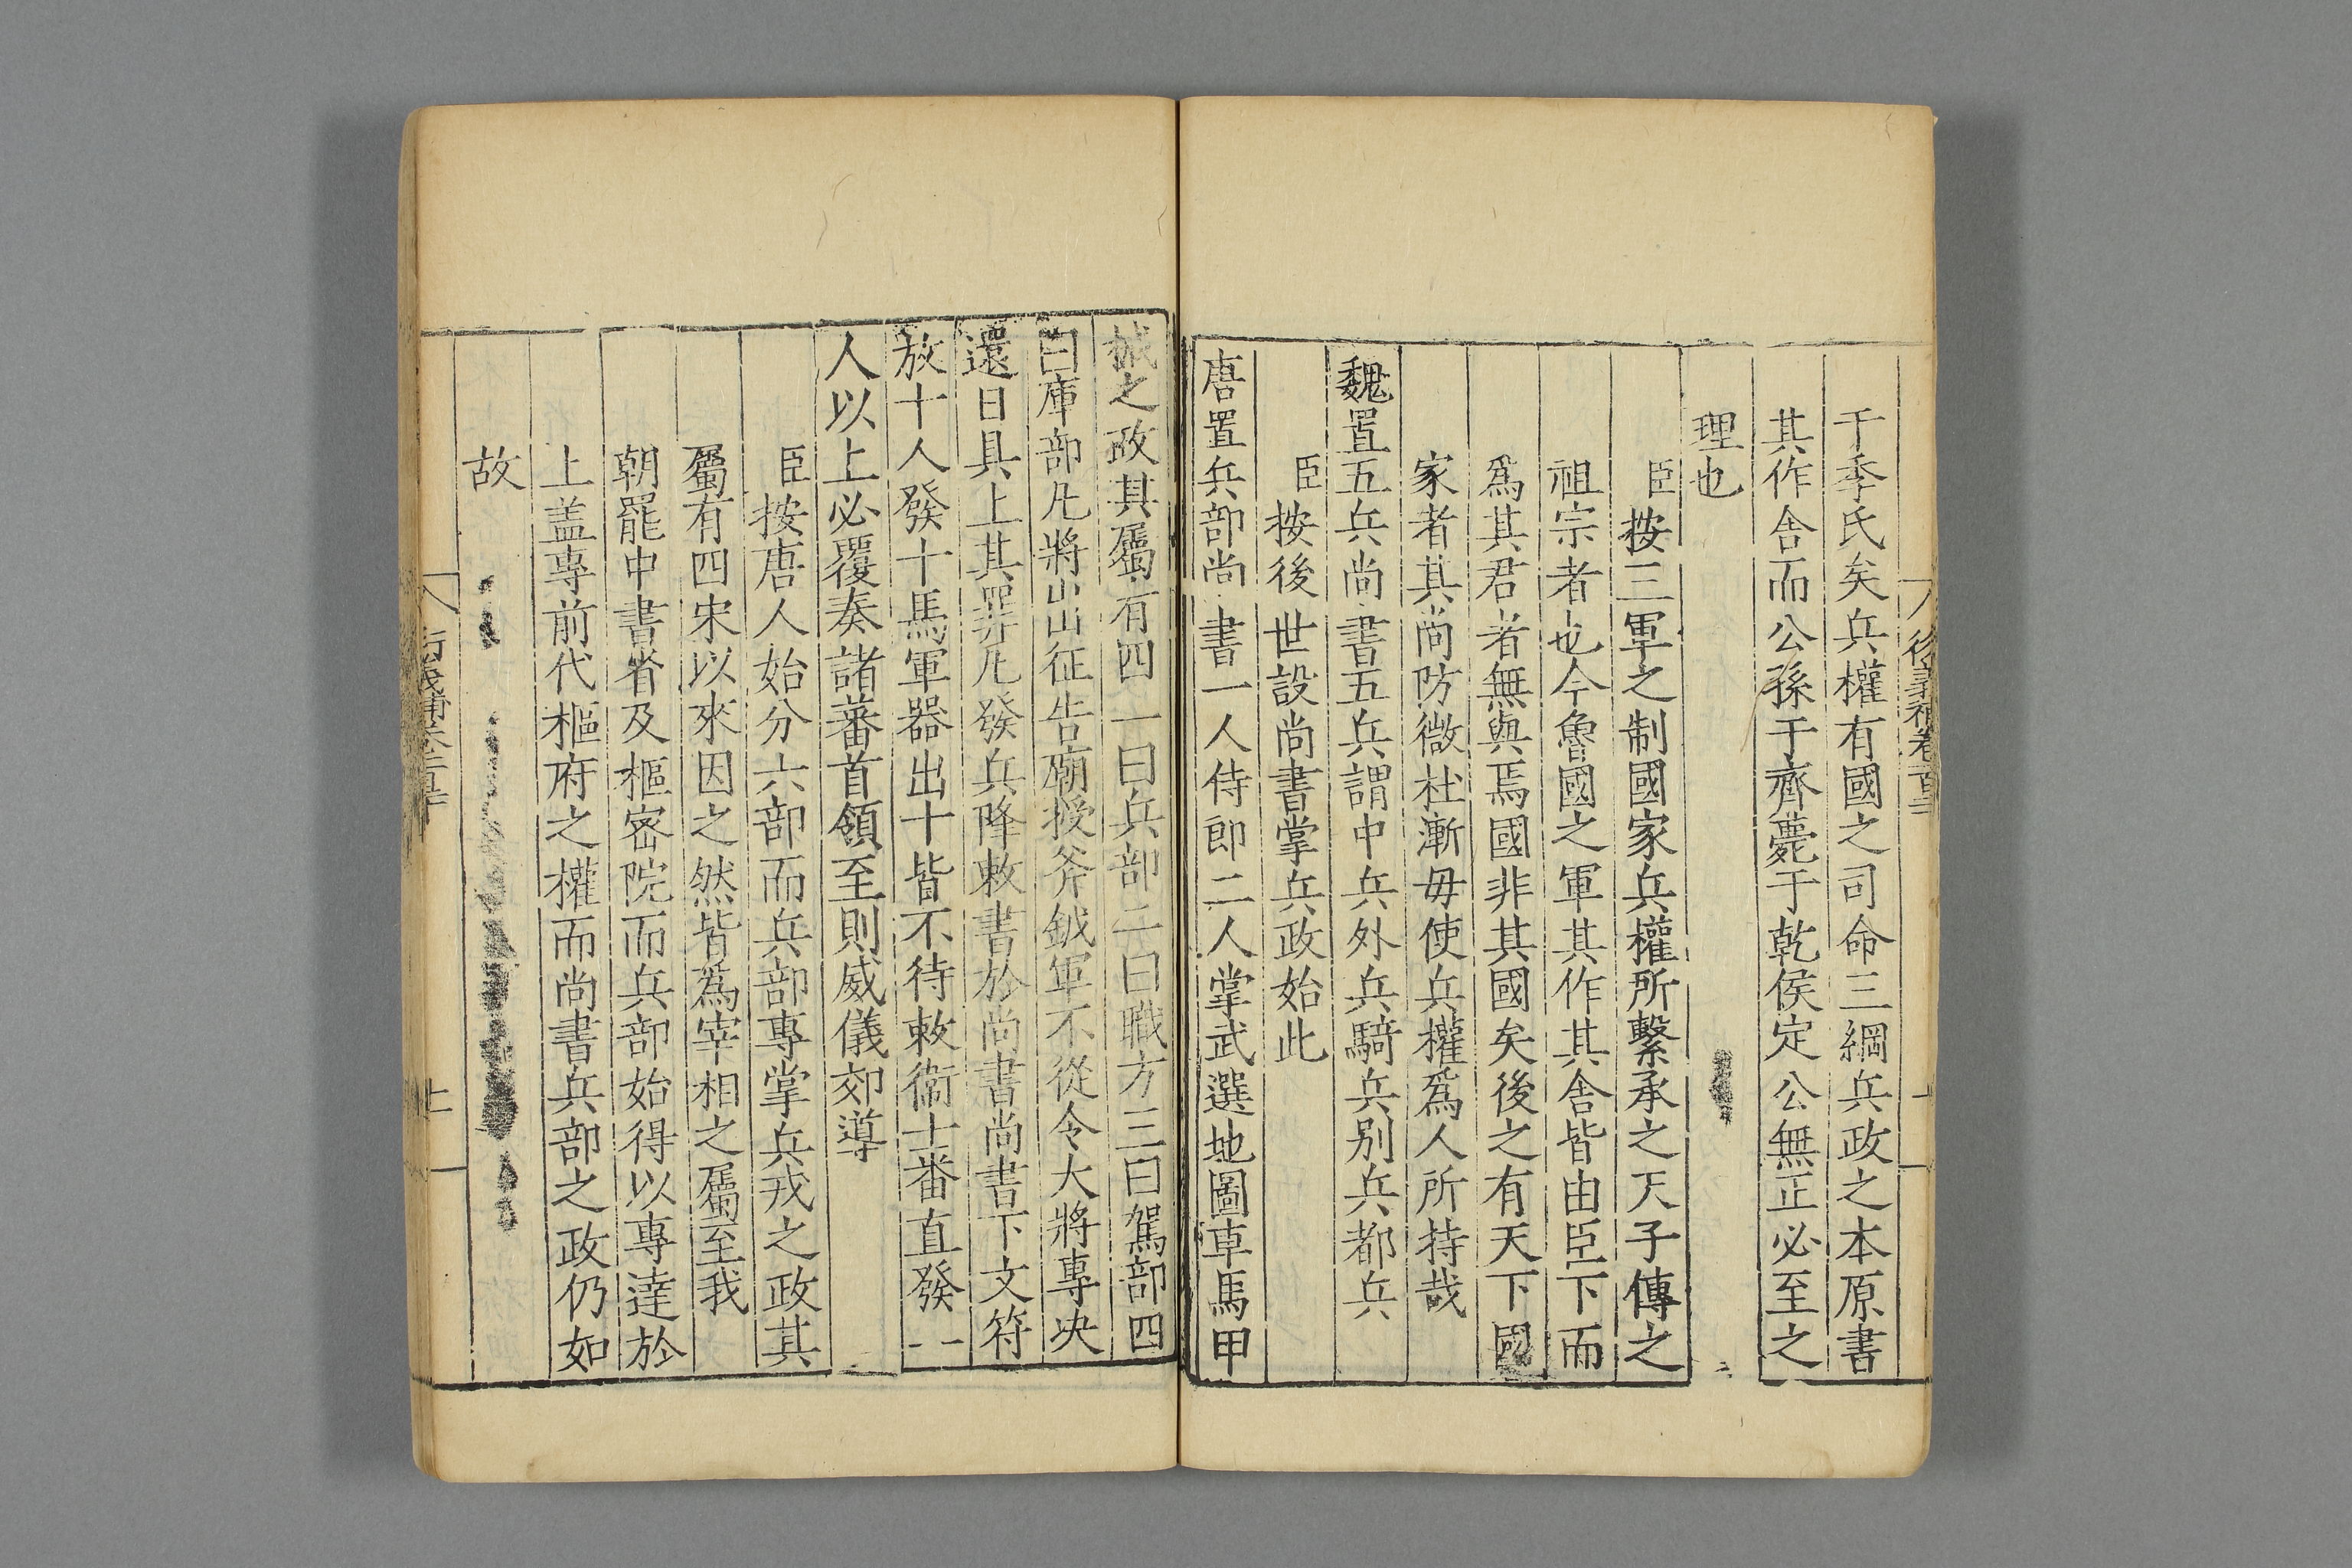 于季氏矣兵權有國之司命三綱兵政之本原書
其作舍而公孫于齊薨于乾侯定公無正必至之
理也
臣按三軍之制國家兵權所繫承之天子傳之
祖宗者也今魯國之軍其作其舍皆由臣下而
爲其君者無與焉國非其國矣後之有天下國
家者其尚防微杜漸毋使兵權爲人所持哉
魏置五兵尚書五兵謂中兵外兵騎兵別兵都兵
臣按後世設尚書掌兵政始此
唐置兵部尚書一人侍郎二人掌武選地圖車馬甲
械之政其屬有四一曰兵部二曰職方三曰駕部四
曰庫部凡將出征告廟授斧鉞軍不從令大將專决
還日具上其罪凡發兵降敕書於尚書尚書下文符
放十人發十馬軍器出十皆不待敕衞士番直發一
人以上必覆奏諸蕃首領至則威儀郊導
臣按唐人始分六部而兵部專掌兵戎之政其
屬有四宋以來因之然皆爲宰相之屬至我
朝罷中書省及樞密院而兵部始得以專達於
上盖專前代樞府之權而尚書兵部之政仍如
故